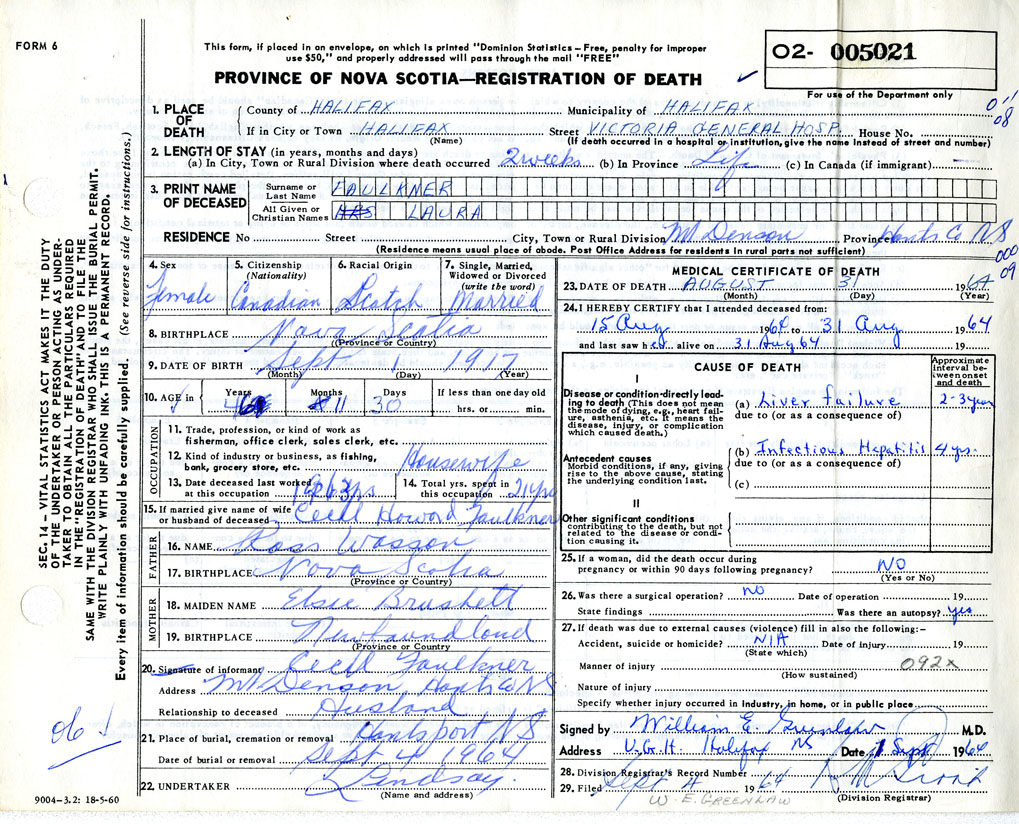 FORM 6
This form, if placed in an envelope, on which is printed "Dominion Statistics – Free, penalty for improper
use $50," and properly addressed will pass through the mail "FREE"
O2- 005021
PROVINCE OF NOVA SCOTIA—REGISTRATION OF DEATH ✓
For use of the Department only
1. PLACE OF DEATH
County of HALIFAX Municipality of HALIFAX
If in City or Town HALIFAX Street VICTORIA GENERAL HOSP. House No.
(Name) (If death occurred in a hospital or institution, give name instead of street and number)
08
2. LENGTH OF STAY (in years, months and days)
(a) In City, Town or Rural Division where death occurred 2 weeks (b) In Province Life (c) In Canada (if immigrant) —
3. PRINT NAME OF DECEASED
Surname or Last Name FAULKNER
All Given or Christian Names MRS LAURA
RESIDENCE No Street City, Town or Rural Division Mt Denson Province Hants Co N S
(Residence means usual place of abode. Post Office Address for residents in rural parts not sufficient)
000
09
4. Sex female
5. Citizenship (Nationality) Canadian
6. Racial Origin Scotch
7. Single, Married, Widowed or Divorced (write the word) Married
8. BIRTHPLACE Nova Scotia
(Province or Country)
9. DATE OF BIRTH Sept 1 1917
(Month) (Day) (Year)
10. AGE in Years 46 Months 11 Days 30 If less than one day old hrs. or min.
OCCUPATION
11. Trade, profession, or kind of work as
fisherman, office clerk, sales clerk, etc.
12. Kind of industry or business, as fishing,
bank, grocery store, etc. Housewife
13. Date deceased last worked at this occupation 1963
14. Total yrs. spent in this occupation 21 yrs
15. If married give name of wife
or husband of deceased Cecil Howard Faulkner
FATHER
16. NAME Ross Wasson
17. BIRTHPLACE Nova Scotia
(Province or Country)
MOTHER
18. MAIDEN NAME Elsie Brushett
19. BIRTHPLACE Newfoundland
(Province or Country)
20. Signature of informant Cecil Faulkner
Address Mt Denson Hants Co NS
Relationship to deceased Husband
21. Place of burial, cremation or removal Hantsport N S
Date of burial or removal Sept 4 1964
22. UNDERTAKER Lindsay.
(Name and address)
9004-3.2: 18-5-60
MEDICAL CERTIFICATE OF DEATH
23. DATE OF DEATH AUGUST 31 1964
(Month) (Day) (Year)
24. I HEREBY CERTIFY that I attended deceased from:
15 Aug 1964 to 31 Aug 1964
and last saw her alive on 31 Aug 64 19
CAUSE OF DEATH
Approximate interval between onset and death
I
Disease or condition directly leading to death (This does not mean the mode of dying, e.g., heart failure, asthenia, etc. It means the disease, injury, or complication which caused death.)
(a) Liver failure 2-3 years
due to (or as a consequence of)
Antecedent causes
Morbid conditions, if any, giving rise to the above cause, stating the underlying condition last.
(b) Infectious Hepatitis 4 yrs.
due to (or as a consequence of)
(c)
II
Other significant conditions
contributing to the death, but not related to the disease or condition causing it.
25. If a woman, did the death occur during
pregnancy or within 90 days following pregnancy? NO
(Yes or No)
26. Was there a surgical operation? NO Date of operation 19
State findings Was there an autopsy? yes
27. If death was due to external causes (violence) fill in also the following:–
Accident, suicide or homicide? N/A Date of injury 19
(State which)
092X
Manner of injury
(How sustained)
Nature of injury
Specify whether injury occurred in industry, in home, or in public place
Signed by William E. Greenlaw M.D.
Address V.G.H. Halifax NS Date 1 Sept 1964
28. Division Registrar's Record Number
29. Filed Sept 4 1964
W. E. GREENLAW
(Division Registrar)
SEC. 14 – VITAL STATISTICS ACT MAKES IT THE DUTY
OF THE UNDERTAKER OR PERSON ACTING AS UNDER-
TAKER TO OBTAIN ALL THE PARTICULARS REQUIRED
IN THE "REGISTRATION OF DEATH" AND TO FILE THE
SAME WITH THE DIVISION REGISTRAR WHO SHALL ISSUE THE BURIAL PERMIT.
WRITE PLAINLY WITH UNFADING INK. THIS IS A PERMANENT RECORD.
Every item of information should be carefully supplied. (See reverse side for instructions.)